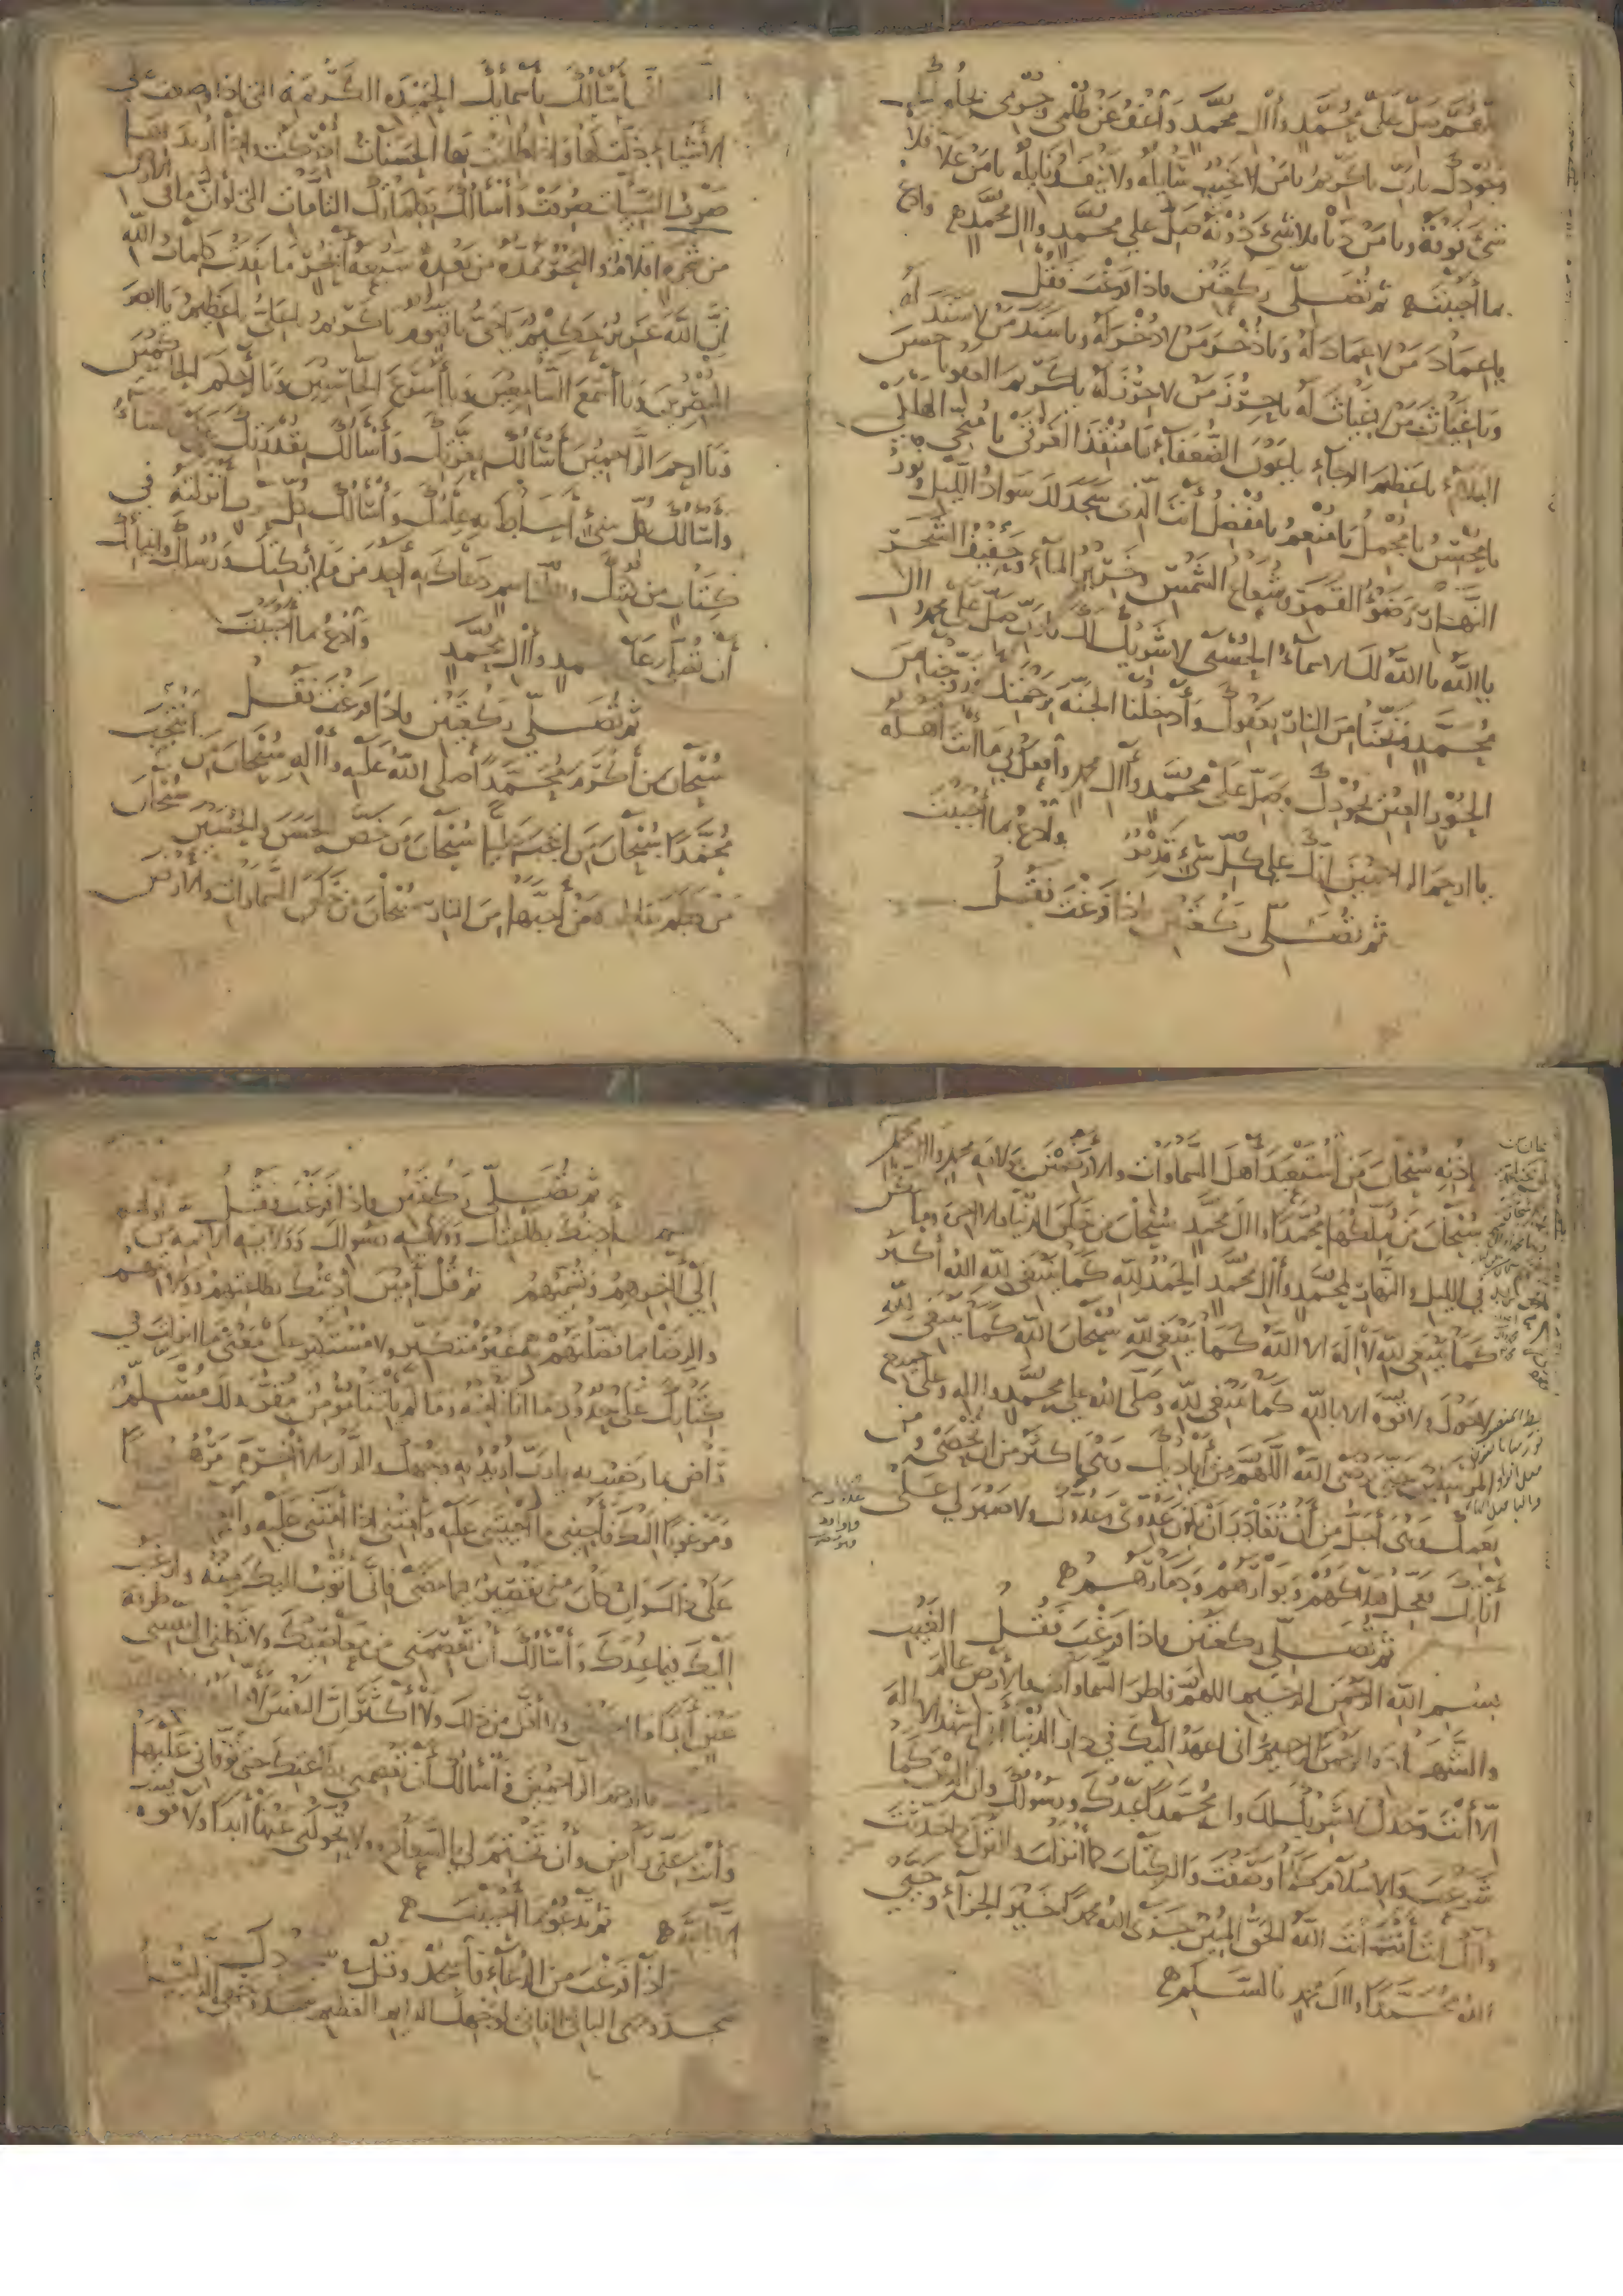 اللهم صل على محمد وآل محمد واعف عن ظلمي وجرمي بحلمك
وجودك يا رب يا كريم يا من لا يخيب سائله ولا ينفد نايله يا من علا فلا
شيء فوقه ويا من دنا فلا شيء دونه صل على محمد وآل محمد وادع
بما أحببت ثم تصلي ركعتين فاذا فرغت فقل
يا عماد من لا عماد له ويا ذخر من لا ذخر له ويا سند من لا سند له
ويا غياث من لا غياث له يا حرز من لا حرز له يا كريم العفو يا حسن
البلاء يا عظيم الرجاء يا عون الضعفاء يا منقذ الغرقى يا منجي الهلكى
يا محسن يا مجمل يا منعم يا مفضل أنت الذي سجد لك سواد الليل ونور
النهار وضوء القمر وشعاع الشمس وخرير الماء وحفيف الشجر
يا الله يا الله لك الاسماء الحسنى لا شريك لك يا رب صل على محمد وآل
محمد ونجنا من النار بعفوك وأدخلنا الجنة برحمتك وزوجنا من
الحور العين بجودك وصل على محمد وآل محمد وافعل بي ما أنت أهله
يا ارحم الراحمين انك على كل شيء قدير وادع بما أحببت
ثم تصلي ركعتين اذا فرغت فقل
أسألك بأسمايك الحميدة الكريمة التي اذا وضعت على
الأشياء ذلت لها واذا طلبت بها الحسنات أدركت واذا أريد بها
صرف السيئات صرفت وأسألك بكلماتك التامات التي لو أن ما في الأرض
من شجرة اقلام والبحر يمده من بعده سبعة أبحر ما نفدت كلمات الله
إن الله عزيز حكيم يا حي يا قيوم يا كريم يا علي يا عظيم يا ابصر
المبصرين ويا أسمع السامعين ويا أسرع الحاسبين ويا أحكم الحاكمين
ويا ارحم الراحمين أسألك بعزتك وأسألك بقدرتك على ما تشاء
وأسألك بكل شيء أحاط به علمك وأسألك بكل حرف أنزلته في
كتاب من كتبك وبكل اسم دعاك به أحد من ملائكتك ورسلك وانبيائك
أن تصلي على محمد وآل محمد وادع بما أحببت
ثم تصلي ركعتين فاذا فرغت فقل
سبحان من أكرم محمدا صلى الله عليه وآله سبحان من انتجب
محمدا سبحان من انتجب عليا سبحان من خص الحسن والحسين سبحان
من فطم بفاطمة من أحبها من النار سبحان من خلق السماوات والأرض
بإذنه سبحان من استعبد أهل السماوات والأرضين بولاية محمد وآل محمد
سبحان من ملكها محمدا وآل محمد سبحان من خلق الدنيا والآخرة وما سكن
في الليل والنهار لمحمد وآل محمد الحمد لله كما ينبغي لله الله أكبر
كما ينبغي لله لا إله إلا الله كما ينبغي لله سبحان الله كما ينبغي لله
لا حول ولا قوة إلا بالله كما ينبغي لله وصلى الله على محمد وآله وعلى جميع
المرسلين حتى يرضى الله اللهم من أياديك وهي أكثر من أن تحصى ومن
نعمك وهي أجل من أن تغادر أن يكون عدوي عدوك ولا صبر لي على
أناتك فعجل هلاكهم وبوارهم ودمارهم
ثم تصلي ركعتين فاذا فرغت فقل
بسم الله الرحمن الرحيم اللهم فاطر السماوات والأرض عالم الغيب
والشهادة الرحمن الرحيم اني اعهد اليك في دار الدنيا أني اشهد أن لا إله
إلا أنت وحدك لا شريك لك وان محمدا عبدك ورسولك وان الدين كما
شرعت والاسلام كما وصفت والكتاب كما أنزلت والقول كما حدثت
وانك أنت أنت أنت الله الحق المبين جزى الله محمدا خير الجزاء وحيى
الله محمدا وآل محمد بالسلام
ثم تصلي ركعتين فاذا فرغت فقل
اللهم أدينك بطاعتك وولايته رسولك وولاية الأئمة من اولهم
إلى آخرهم وتسميهم ثم قل آمين أدينك بطاعتهم وولايتهم
والرضا بما فضلتهم به غير متكبر ولا مستكبر على معنى ما انزلت في
كتابك على حدود ما اتانا فيه وما لم يأتنا مؤمن مقر بذلك مسلم
راض بما رضيت به يا رب أريد به وجهك والدار الآخرة مرهوبا
ومرغوبا اليك فأحيني ما أحييتني عليه وأمتني اذا أمتني عليه وابعثني
على ذلك وان كان مني تقصير فيما مضى فاني أتوب اليك منه وارغب
اليك فيما عندك وأسألك أن تعصمني من معاصيك ولا تكلني الى نفسي طرفة
عين أبدا ما أحييتني ولا أقل من ذلك ولا أكثر ان النفس لأمارة
يا ارحم الراحمين وأسألك أن تعصمني بطاعتك حتى توفاني عليها
وأنت عني راض وأن تختم لي بالسعادة ولا تحولني عنها أبدا ولا قوة
إلا بالله ثم تدعو بما أحببت
فاذا فرغت من الدعاء فاسجد وقل في سجودك
سجد وجهي البالي الفاني لوجهك الدايم العظيم سجد وجهي الذليل